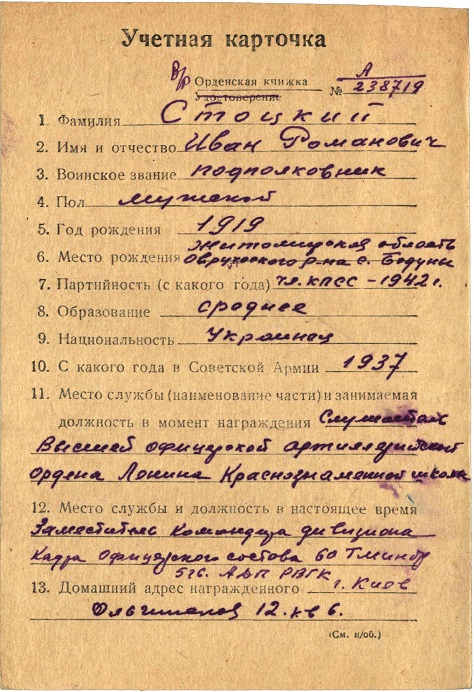 Учетная карточка
д/р Орденская книжка А
Удостоверение № 238719
1. Фамилия Стоцкий
2. Имя и отчество Иван Романович
3. Воинское звание подполковник
4. Пол мужской
5. Год рождения 1919
Житомирская область
6. Место рождения Овручского р-на с. Бодуны
7. Партийность (с какого года) чл. КПСС - 1942 г.
8. Образование среднее
9. Национальность Украинец
10. С какого года в Советской Армии 1937
11. Место службы (наименование части) и занимаемая
должность в момент награждения Слушатель
Высшей офицерской артиллерийской
ордена Ленина Краснознаменной школы
12. Место службы и должность в настоящее время
Заместитель Командира дивизиона
Кадра офицерского состава 60
АДП РВГК
13. Домашний адрес награжденного г. Киев
12. кв 6.
(См. н/об.)